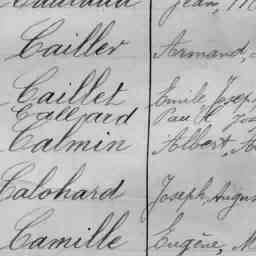 Jean,
Cailler Armand,
Caillet Emile Joseph
Calloard Paul
Calmin Albert,
Calohard Joseph, Augus
Camille Eugène, M